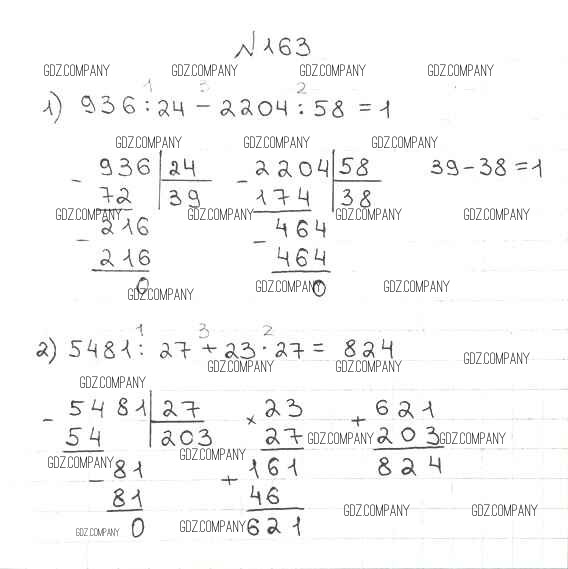 №163
GDZ.COMPANY GDZ.COMPANY GDZ.COMPANY GDZ.COMPANY
1 3 2
1) 936 : 24 − 2204 : 58 = 1
GDZ.COMPANY GDZ.COMPANY GDZ.COMPANY
− 936 24 − 2204 58 39 − 38 = 1
72 39 174 38
GDZ.COMPANY GDZ.COMPANY GDZ.COMPANY GDZ.COMPANY
− 216 − 464
216 464
0 0
GDZ.COMPANY GDZ.COMPANY GDZ.COMPANY
1 3 2
2) 5481 : 27 + 23 · 27 = 824
GDZ.COMPANY GDZ.COMPANY GDZ.COMPANY
GDZ.COMPANY
− 5481 27 × 23 + 621
54 203 27 203
GDZ.COMPANY GDZ.COMPANY
GDZ.COMPANY GDZ.COMPANY
− 81 + 161 824
81 46
0 621
GDZ.COMPANY GDZ.COMPANY GDZ.COMPANY GDZ.COMPANY